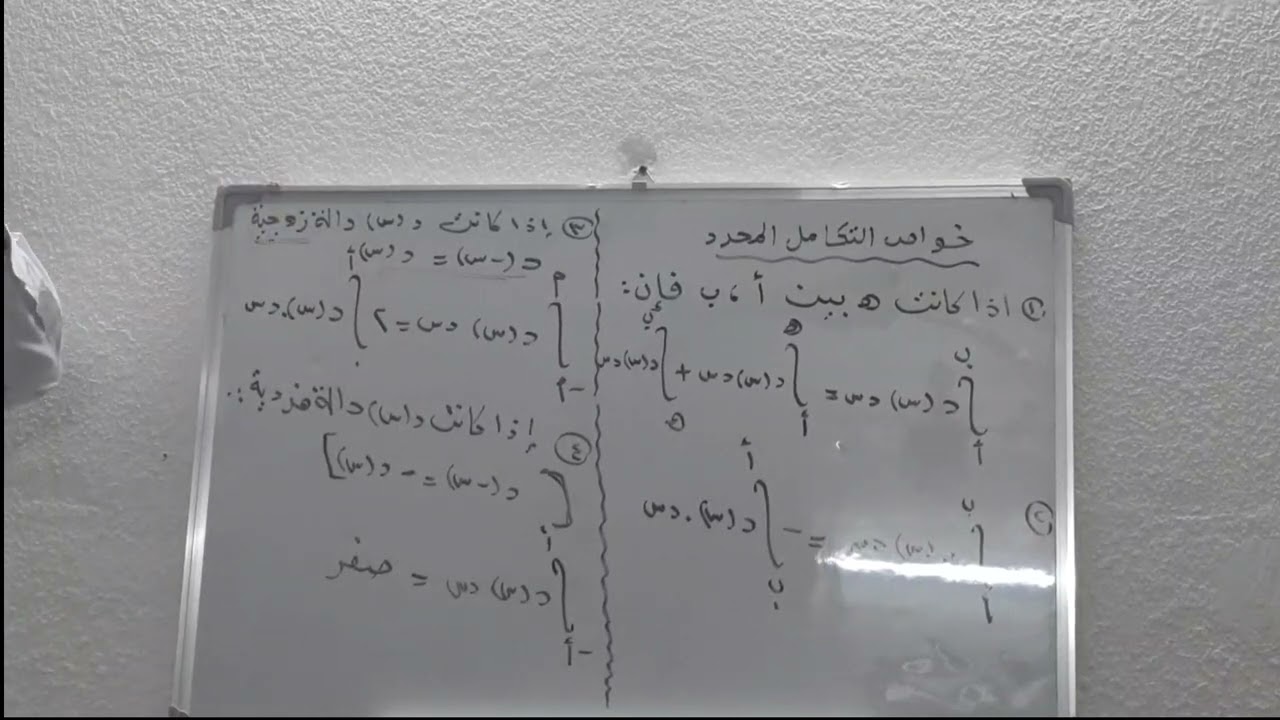 خواص التكامل المحدد
① اذا كانت هـ بين أ ، ب فإن:
ب
أ∫ د (س) دس = أ∫هـ د(س) دس + هـ∫ د(س) دس
②
ب
أ∫ = - ب∫أ د(س) . دس
③ إذا كانت د(س) دالة زوجية
د(-س) = د(س)
∫ د(س) دس = ٢ ∫ د(س) . دس
④ إذا كانت د(س) دالة فردية :
[د(-س) = - د(س)]
-أ∫أ د(س) دس = صفر